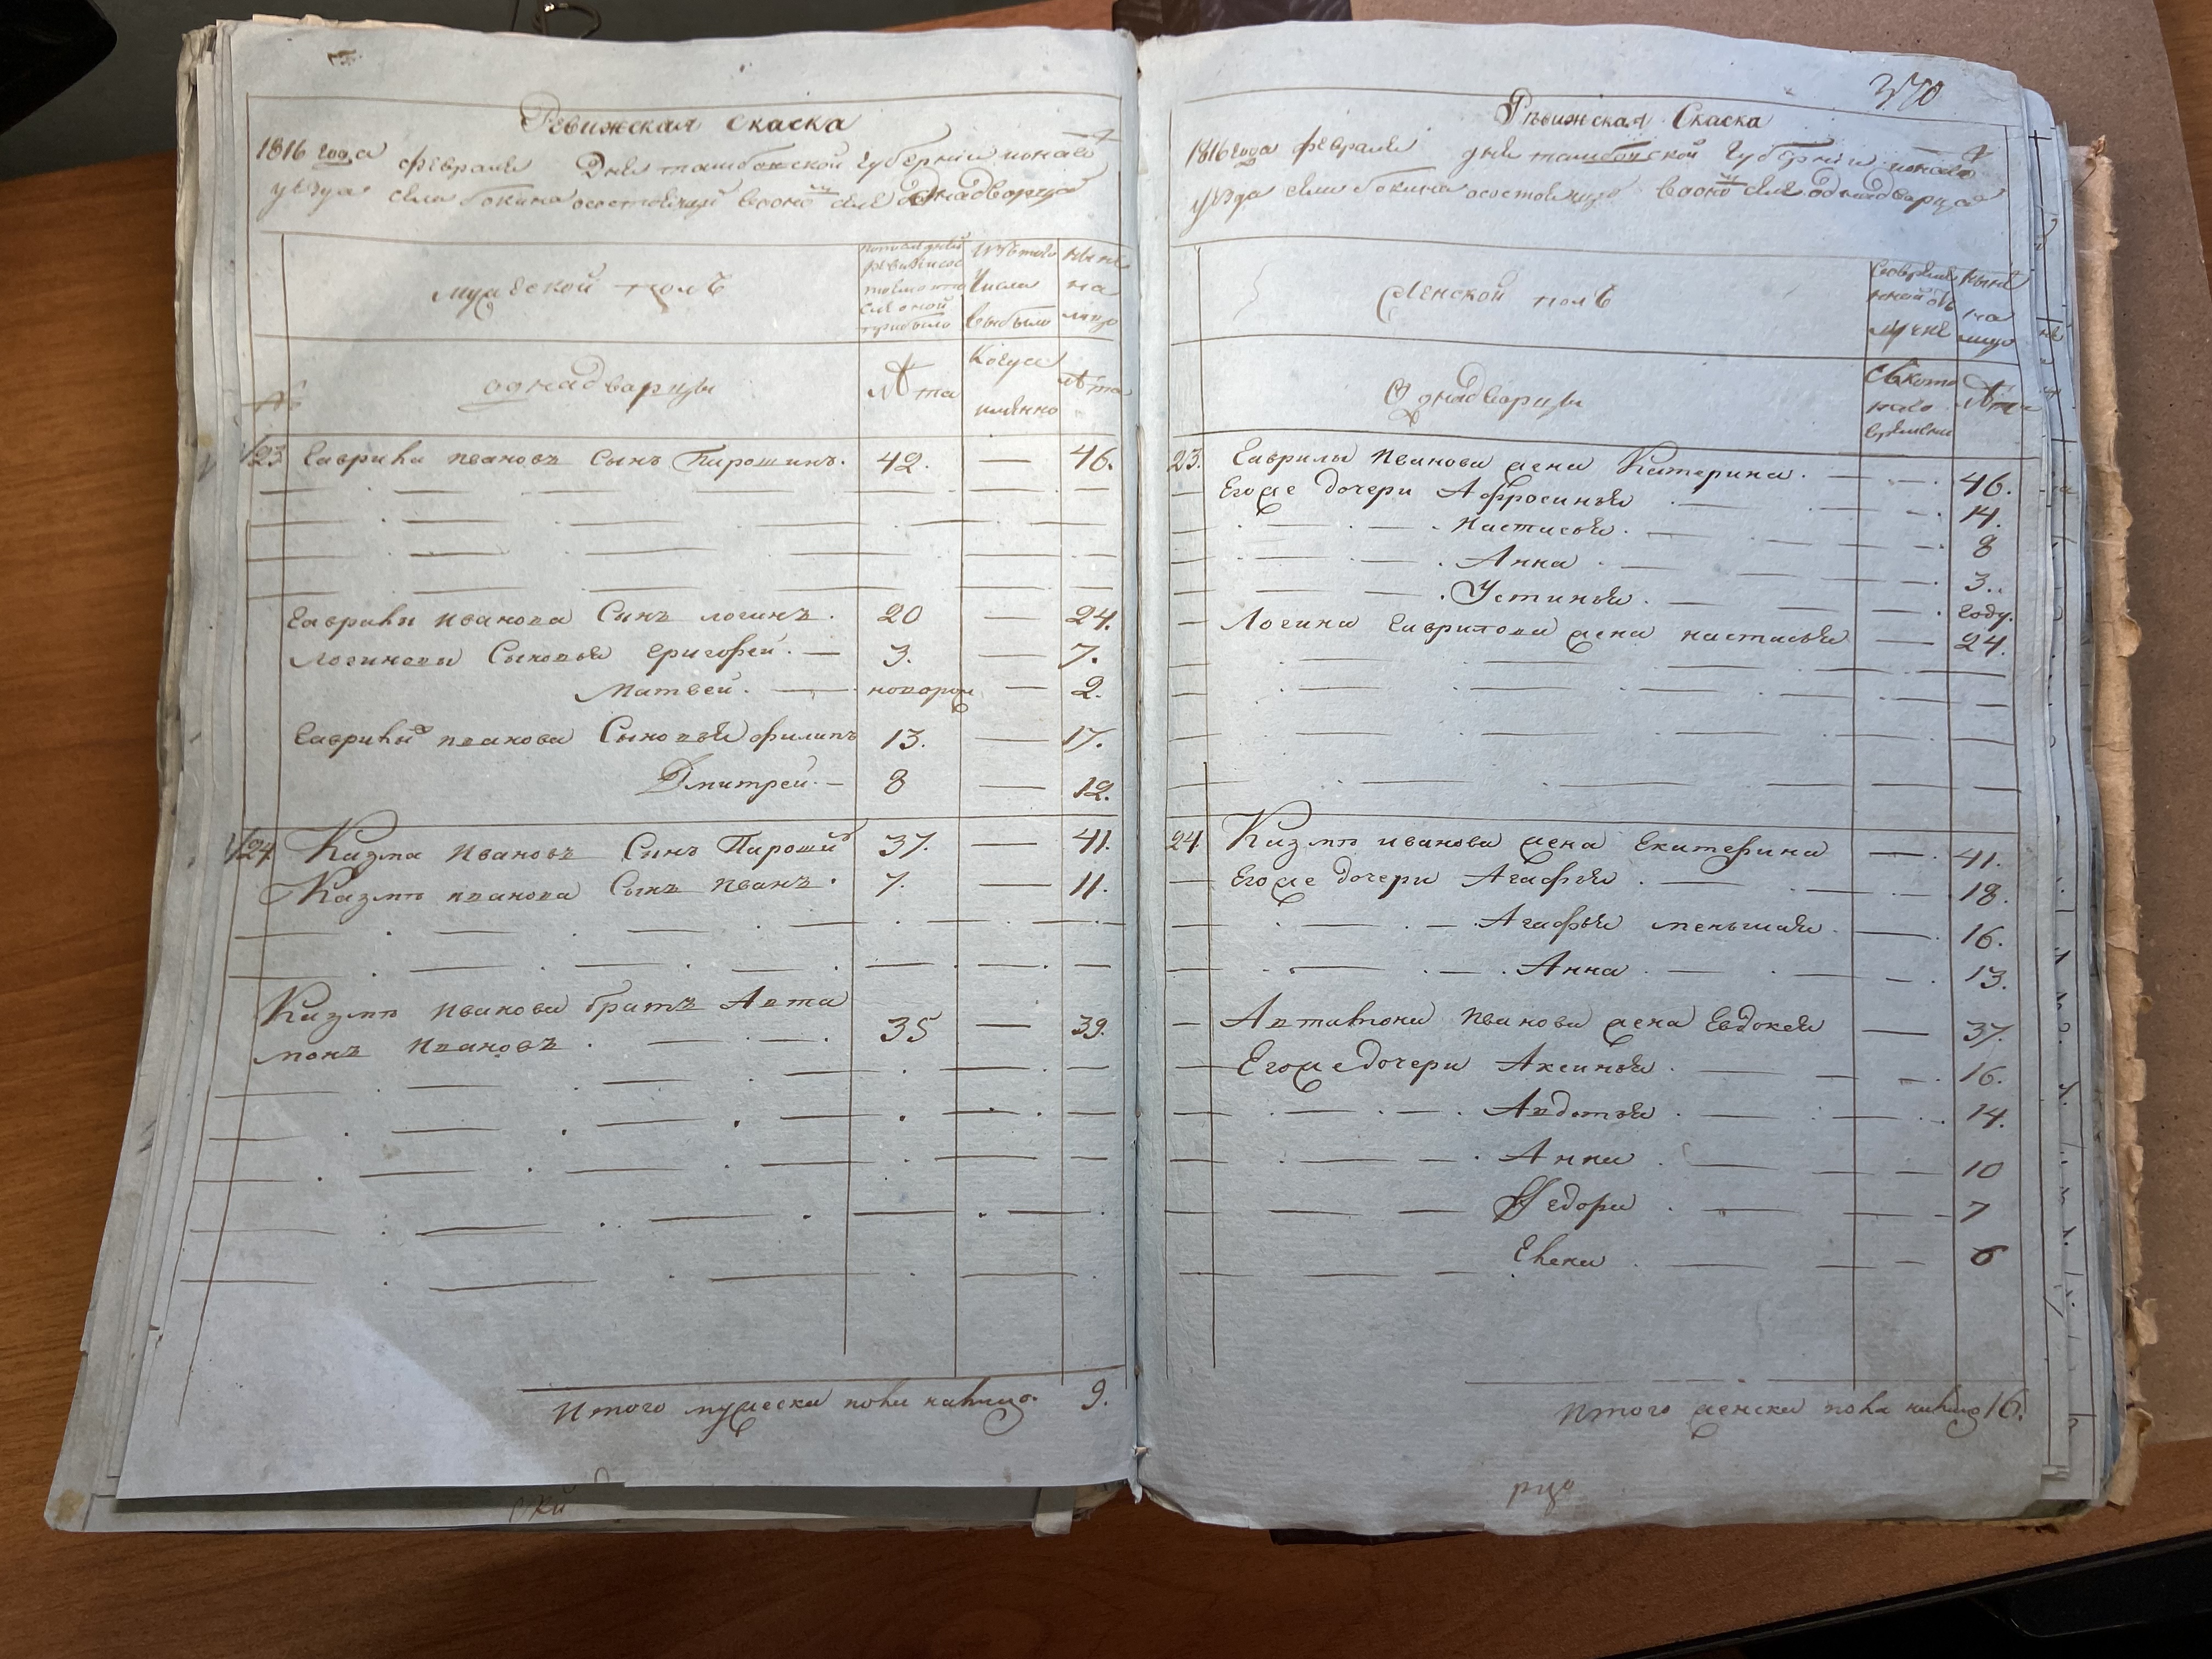 Ревижская скаска
1816 года февраля дня танбовской губернии
уезда села бокина о состоящих во оном селе однадворцах
мужеской полъ
по последней ревизии состояло и после оной прибыло
изъ того числа выбыло
ныне на лицо
№
однадворцы
лѣта
когда именно
лѣта
23 Гаврила Ивановъ сынъ Пирошинъ. 42. — 46.
Гаврилы Иванова Сынъ логинъ. 20 — 24.
Логиновы Сыновья григорей. — 3. — 7.
Матвей. — новорож — 2.
Гаврилы Иванова Сыновья филипъ 13. — 17.
Дмитрей. — 8 — 12.
24 Казма Ивановъ Сынъ Пироши 37. — 41.
Казмы Иванова Сынъ Иванъ. 7. — 11.
Казмы Иванова братъ Авта
монъ Ивановъ. 35 — 39.
Итого мужеска пола налицо. 9.
370
Ревижская Скаска
1816 года февраля дня танбовской губернии
уезда села бокина о состоящих во оном селе однадворцах
женской полъ
во временной отлучке
ныне на лицо
Однадворцы
съ котораго времени
лѣта
23. Гаврилы Иванова жена Катерина. — 46.
Его же дочери Афросинья — 14.
Настасья. — 8
Анна. — 3.
Устинья. — году.
Логина Гаврилова жена настасья — 24.
24. Казмы иванова жена Екатерина — 41.
Его же дочери Агафья. — 18.
Агафья меньшая. — 16.
Анна. — 13.
Автамона Иванова жена Евдокея — 37.
Его же дочери Аксинья. — 16.
Авдотья. — 14.
Анна. — 10
Федора. — 7
Елена. — 6
Итого женска пола налицо 16.